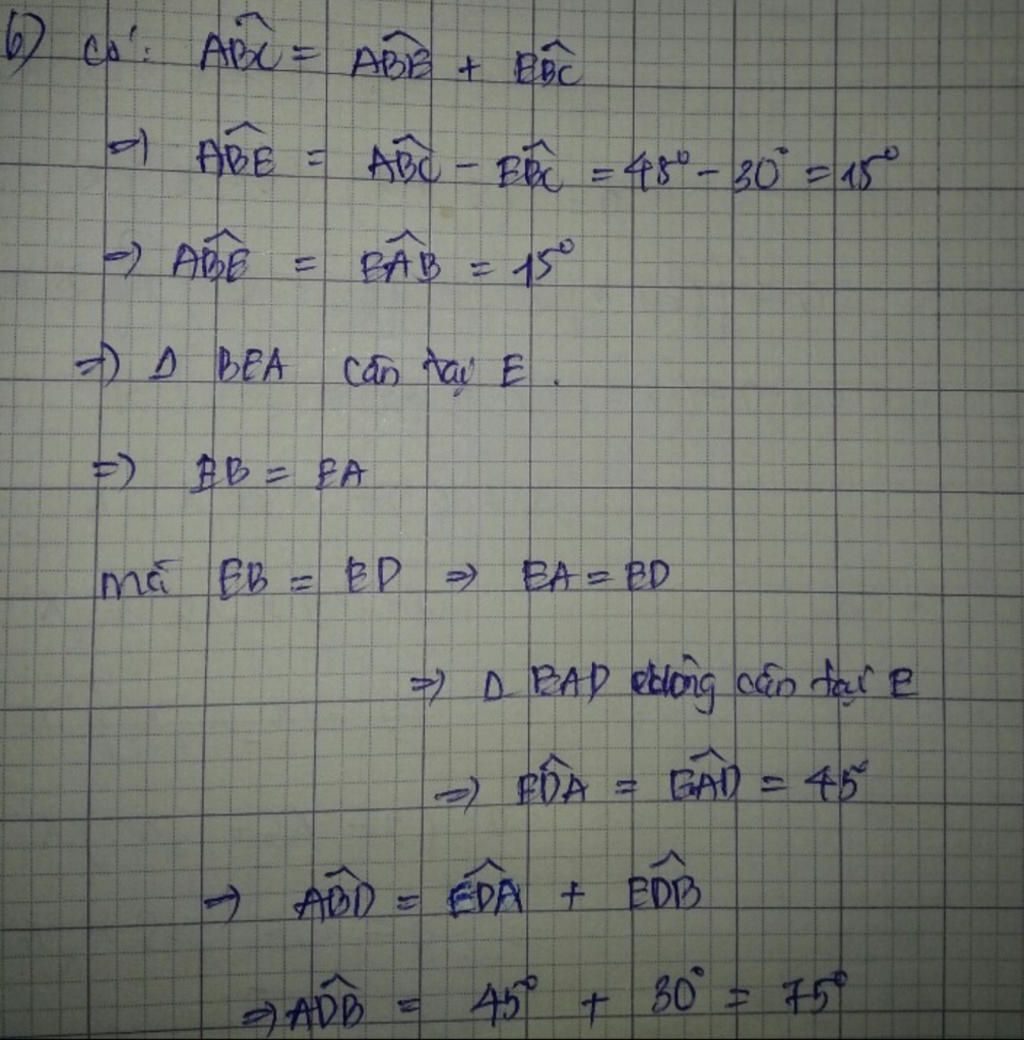 b) Có: ABC^ = ABE^ + EBC^
=> ABE^ = ABC^ - EBC^ = 45° - 30° = 15°
=> ABE^ = EAB^ = 15°
=> Δ BEA cân tại E.
=> EB = EA
mà EB = ED => EA = ED
=> Δ EAD vuông cân tại E
=> EDA^ = EAD^ = 45°
=> ABD^ = EDA^ + EDB^
=> ADB^ = 45° + 30° = 75°